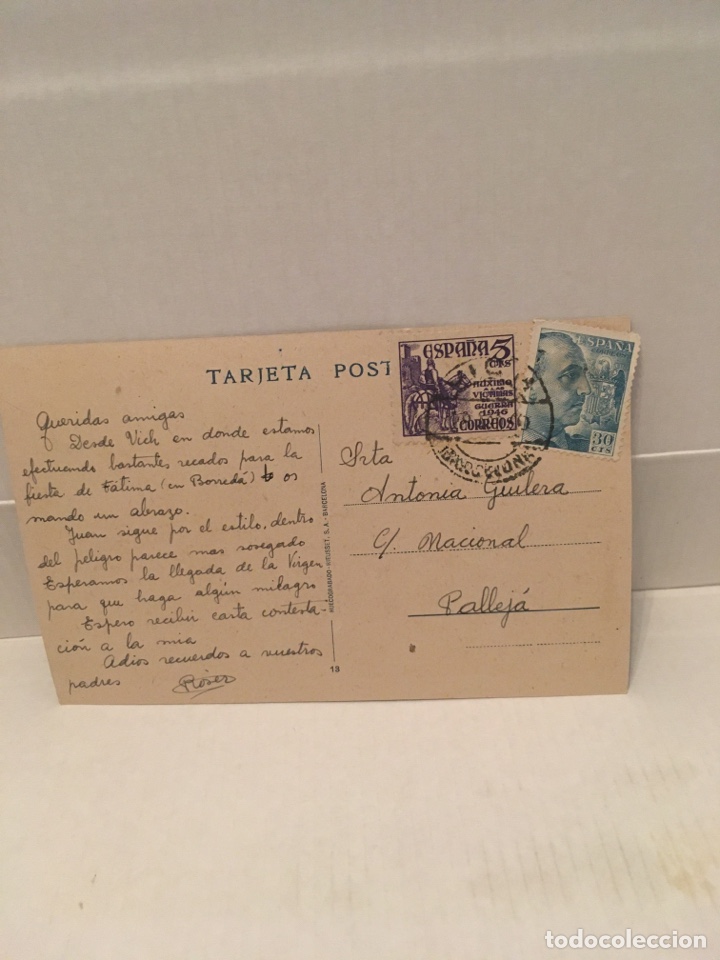 TARJETA POST
Queridas amigas
Desde Vich en donde estamos
efectuando bastantes recados para la
fiesta de Fátima (en Borredá) os
mando un abrazo.
Juan sigue por el estilo, dentro
del peligro parece mas sosegado
Esperamos la llegada de la Virgen
para que haga algún milagro
Espero recibir carta contesta-
ción a la mia
Adios recuerdos a vuestros
padres Roser
HUECOGRABADO RIEUSSET, S.A. - BARCELONA
13
ESPAÑA 5
CTS
AUXILIO
A LAS
VICTIMAS
GUERRA
1946
CORREOS
ESPAÑA
30
CTS
BARCELONA
Srta
Antonia Guilera
C/. Nacional
Pallejá
todocoleccion